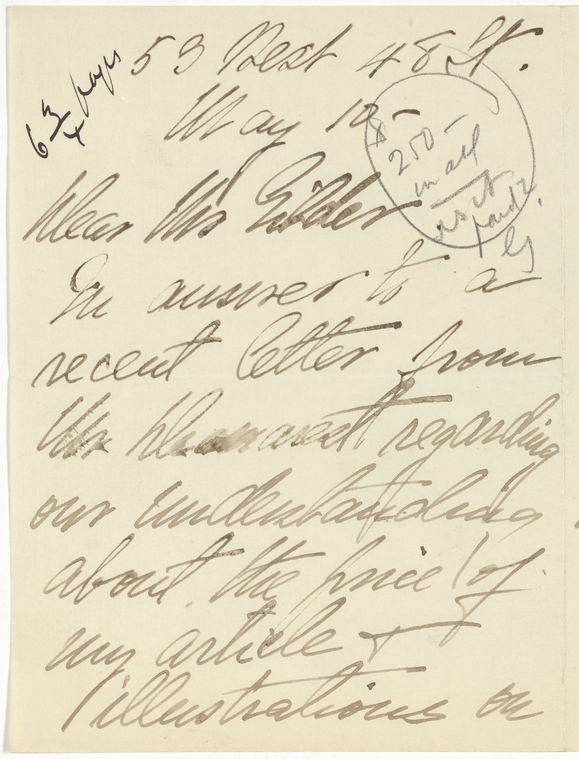 6 3/4 pages
53 West 48 St.
May 10 -
250 -
in all
Dear Mr Gilder
In answer to a
recent letter from
Mr regarding
our understanding
about the price of
my article &
illustrations on